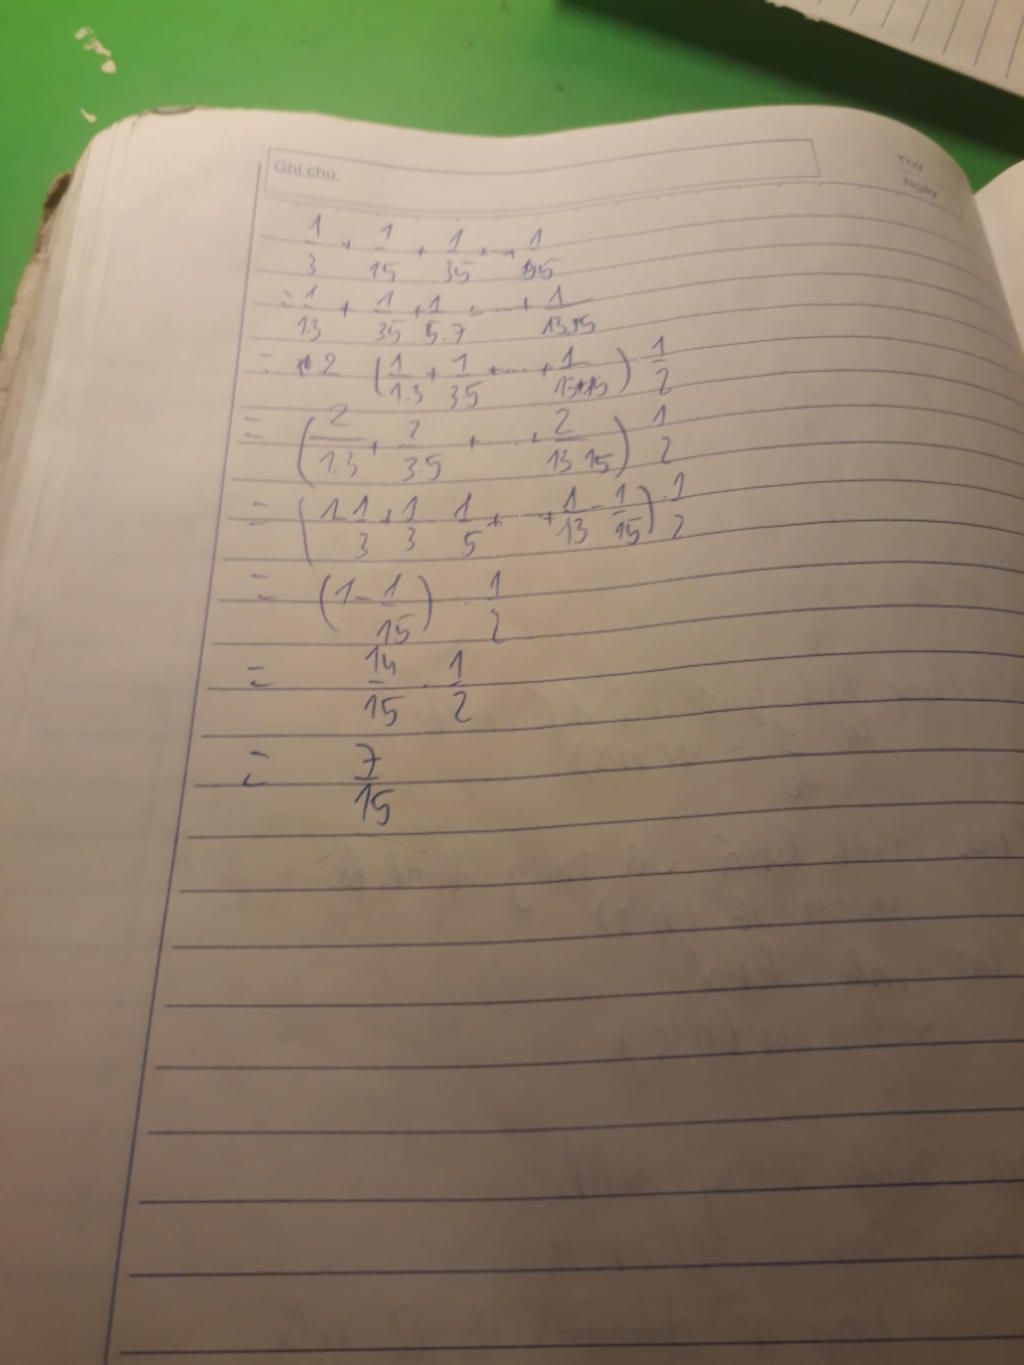 Ghi chú:
Thứ
Ngày
1/3 + 1/15 + 1/35 + ... + 1/195
= 1/1.3 + 1/3.5 + 1/5.7 + ... + 1/13.15
= 2 (1/1.3 + 1/3.5 + ... + 1/13.15) 1/2
= (2/1.3 + 2/3.5 + ... + 2/13.15) 1/2
= (1 - 1/3 + 1/3 - 1/5 + ... + 1/13 - 1/15) . 1/2
= (1 - 1/15) . 1/2
= 14/15 . 1/2
= 7/15